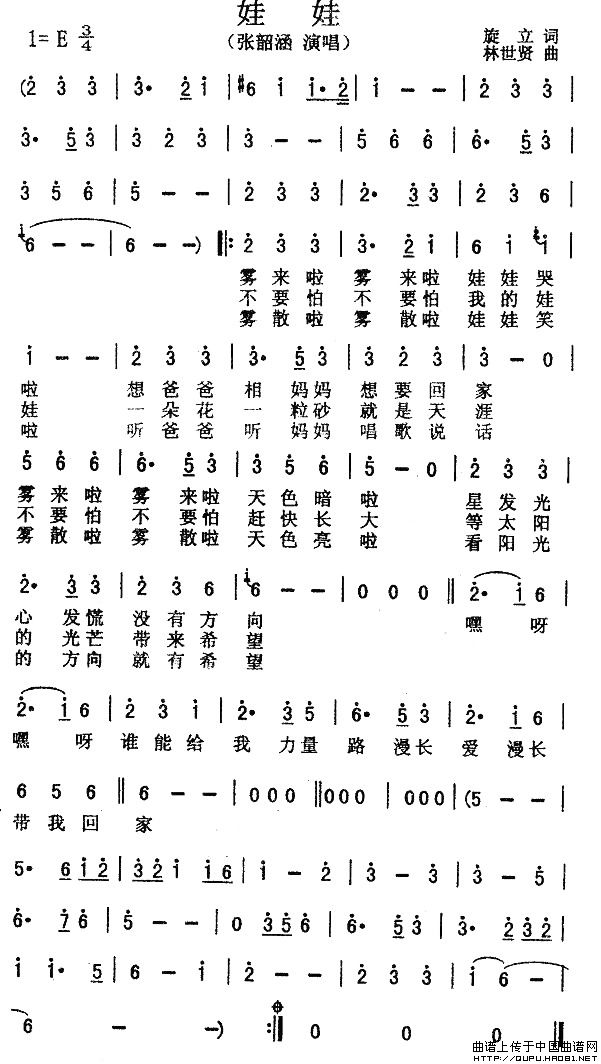 娃 娃
1= E 3/4
(张韶涵 演唱)
旋 立 词
林世贤 曲
(2 3 3 | 3· 2 1 | #6 1 1·2 | 1 - - | 2 3 3 |
3· 5 3 | 3 2 3 | 3 - - | 5 6 6 | 6· 5 3 |
3 5 6 | 5 - - | 2 3 3 | 2· 3 3 | 2 3 6 |
6 - - | 6 - -) |: 2 3 3 | 3· 2 1 | 6 1 1 |
雾 来 啦 雾 来啦 娃娃 哭
不 要 怕 不 要怕 我的 娃
雾 散 啦 雾 散啦 娃娃 笑
1 - - | 2 3 3 | 3· 5 3 | 3 2 3 | 3 - 0 |
啦 想 爸 爸 相 妈妈 想 要 回 家
娃 一 朵 花 一 粒砂 就 是 天 涯
啦 听 爸 爸 听 妈妈 唱 歌 说 话
5 6 6 | 6· 5 3 | 3 5 6 | 5 - 0 | 2 3 3 |
雾 来 啦 雾 来啦 天 色 暗 啦 星 发 光
不 要 怕 不 要怕 赶 快 长 大 等 太 阳
雾 散 啦 雾 散啦 天 色 亮 啦 看 阳 光
2· 3 3 | 2 3 6 | 6 - - | 0 0 0 || 2· 1 6 |
心 发慌 没 有 方 向 嘿 呀
的 光芒 带 来 希 望
的 方向 就 有 希 望
2· 1 6 | 2 3 1 | 2· 3 5 | 6· 5 3 | 2· 1 6 |
嘿 呀 谁 能 给 我 力量 路 漫长 爱 漫长
6 5 6 || 6 - - | 0 0 0 || 0 0 0 | 0 0 0 | (5 - - |
带 我 回 家
5· 6 1 2 | 3 2 1 1 6 | 1 - 2 | 3 - 3 | 3 - 5 |
6· 7 6 | 5 - - | 0 3 5 6 | 6· 5 3 | 3· 2 3 2 |
1 1· 5 | 6 - 1 | 2 - - | 3 3 3 | 1 6 - |
6 - -) :| 0 0 0 ||
曲谱上传于中国曲谱网
http://QUPU.HAO81.NET